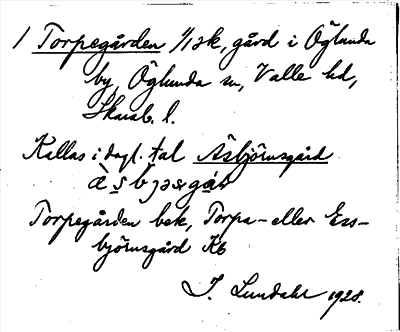 1 Torpegården 4/13k, gård i Öglunda
by, Öglunda sn, Valle hd,
Skarab. l.
Kallas i dagl. tal Äsbjörnsgård
Torpegården bek, Torpa- eller Ess-
björnsgård Kb
I. Lundahl 1928.